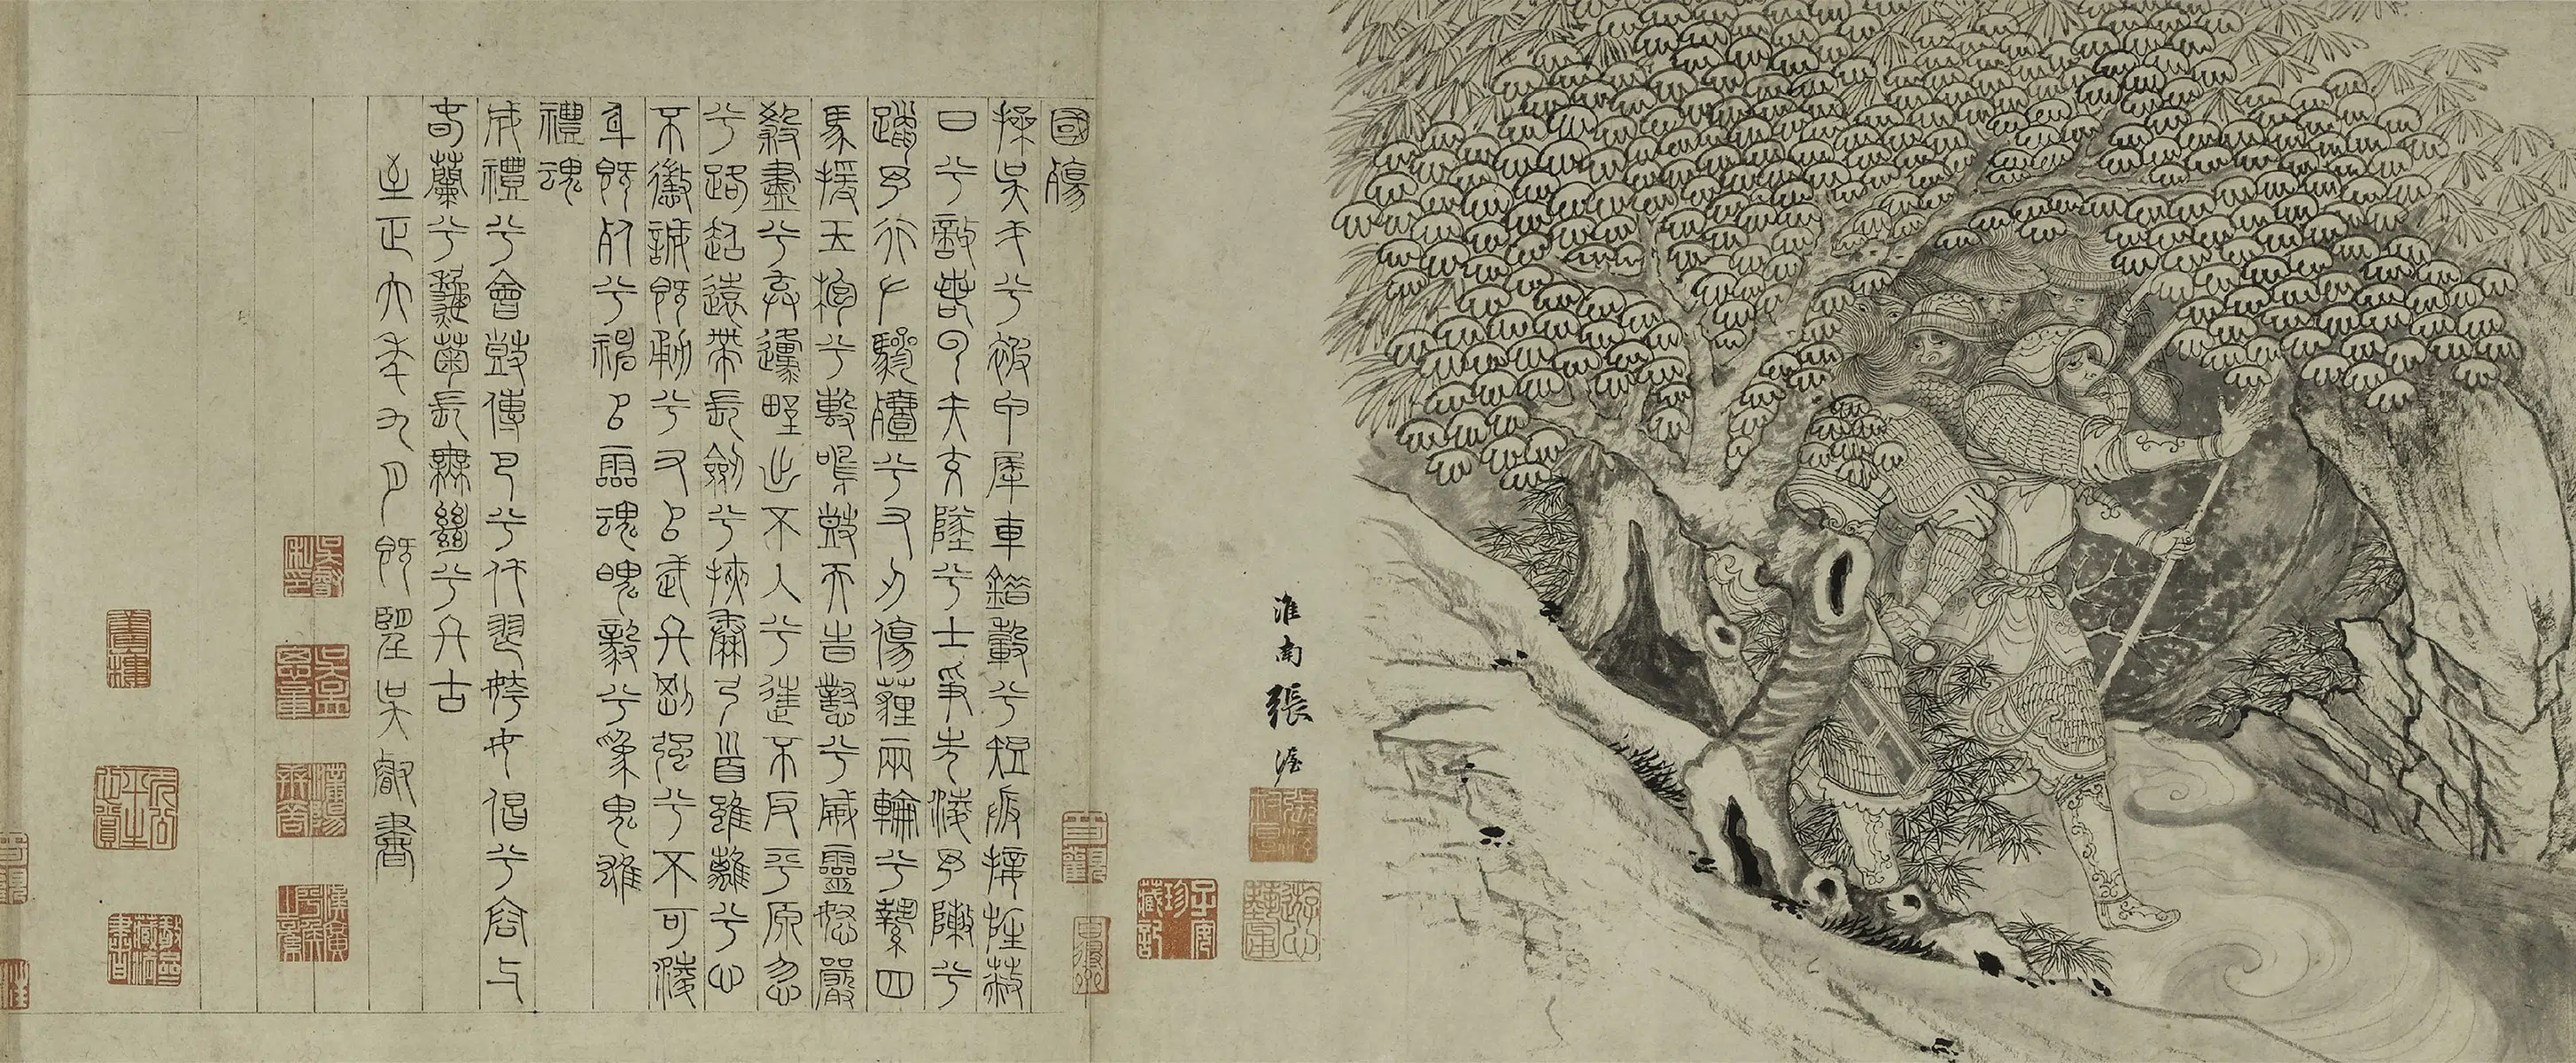 淮南張渥
國殤
操吳戈兮被甲犀車錯轂兮短兵接旌蔽
日兮敵若雲矢交墜兮士爭先淩予陳兮
躐予行左驂殪兮右刃傷霾兩輪兮縶四
馬援玉枹兮擊鳴鼓天時懟兮威靈怒嚴
殺盡兮棄邍野出不入兮往不反平原忽
兮路超遠帶長劍兮挾秦弓首雖離兮心
不懲誠既勇兮又以武終剛強兮不可淩
身既死兮神以靈魂魄毅兮為鬼雄
禮魂
成禮兮會鼓傳巴兮代舞姱女倡兮容與
春蘭兮秋菊長無絕兮終古
至正六年九月既望吳叡書